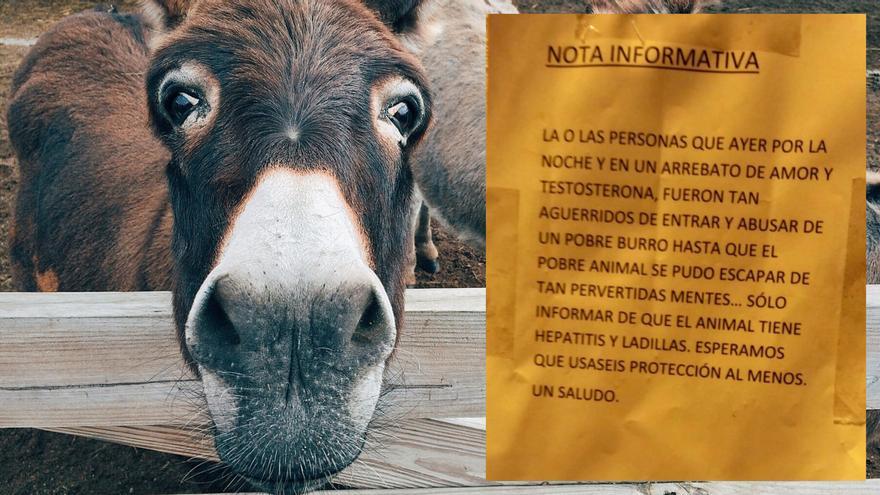 NOTA INFORMATIVA
LA O LAS PERSONAS QUE AYER POR LA
NOCHE Y EN UN ARREBATO DE AMOR Y
TESTOSTERONA, FUERON TAN
AGUERRIDOS DE ENTRAR Y ABUSAR DE
UN POBRE BURRO HASTA QUE EL
POBRE ANIMAL SE PUDO ESCAPAR DE
TAN PERVERTIDAS MENTES... SÓLO
INFORMAR DE QUE EL ANIMAL TIENE
HEPATITIS Y LADILLAS. ESPERAMOS
QUE USASEIS PROTECCIÓN AL MENOS.
UN SALUDO.